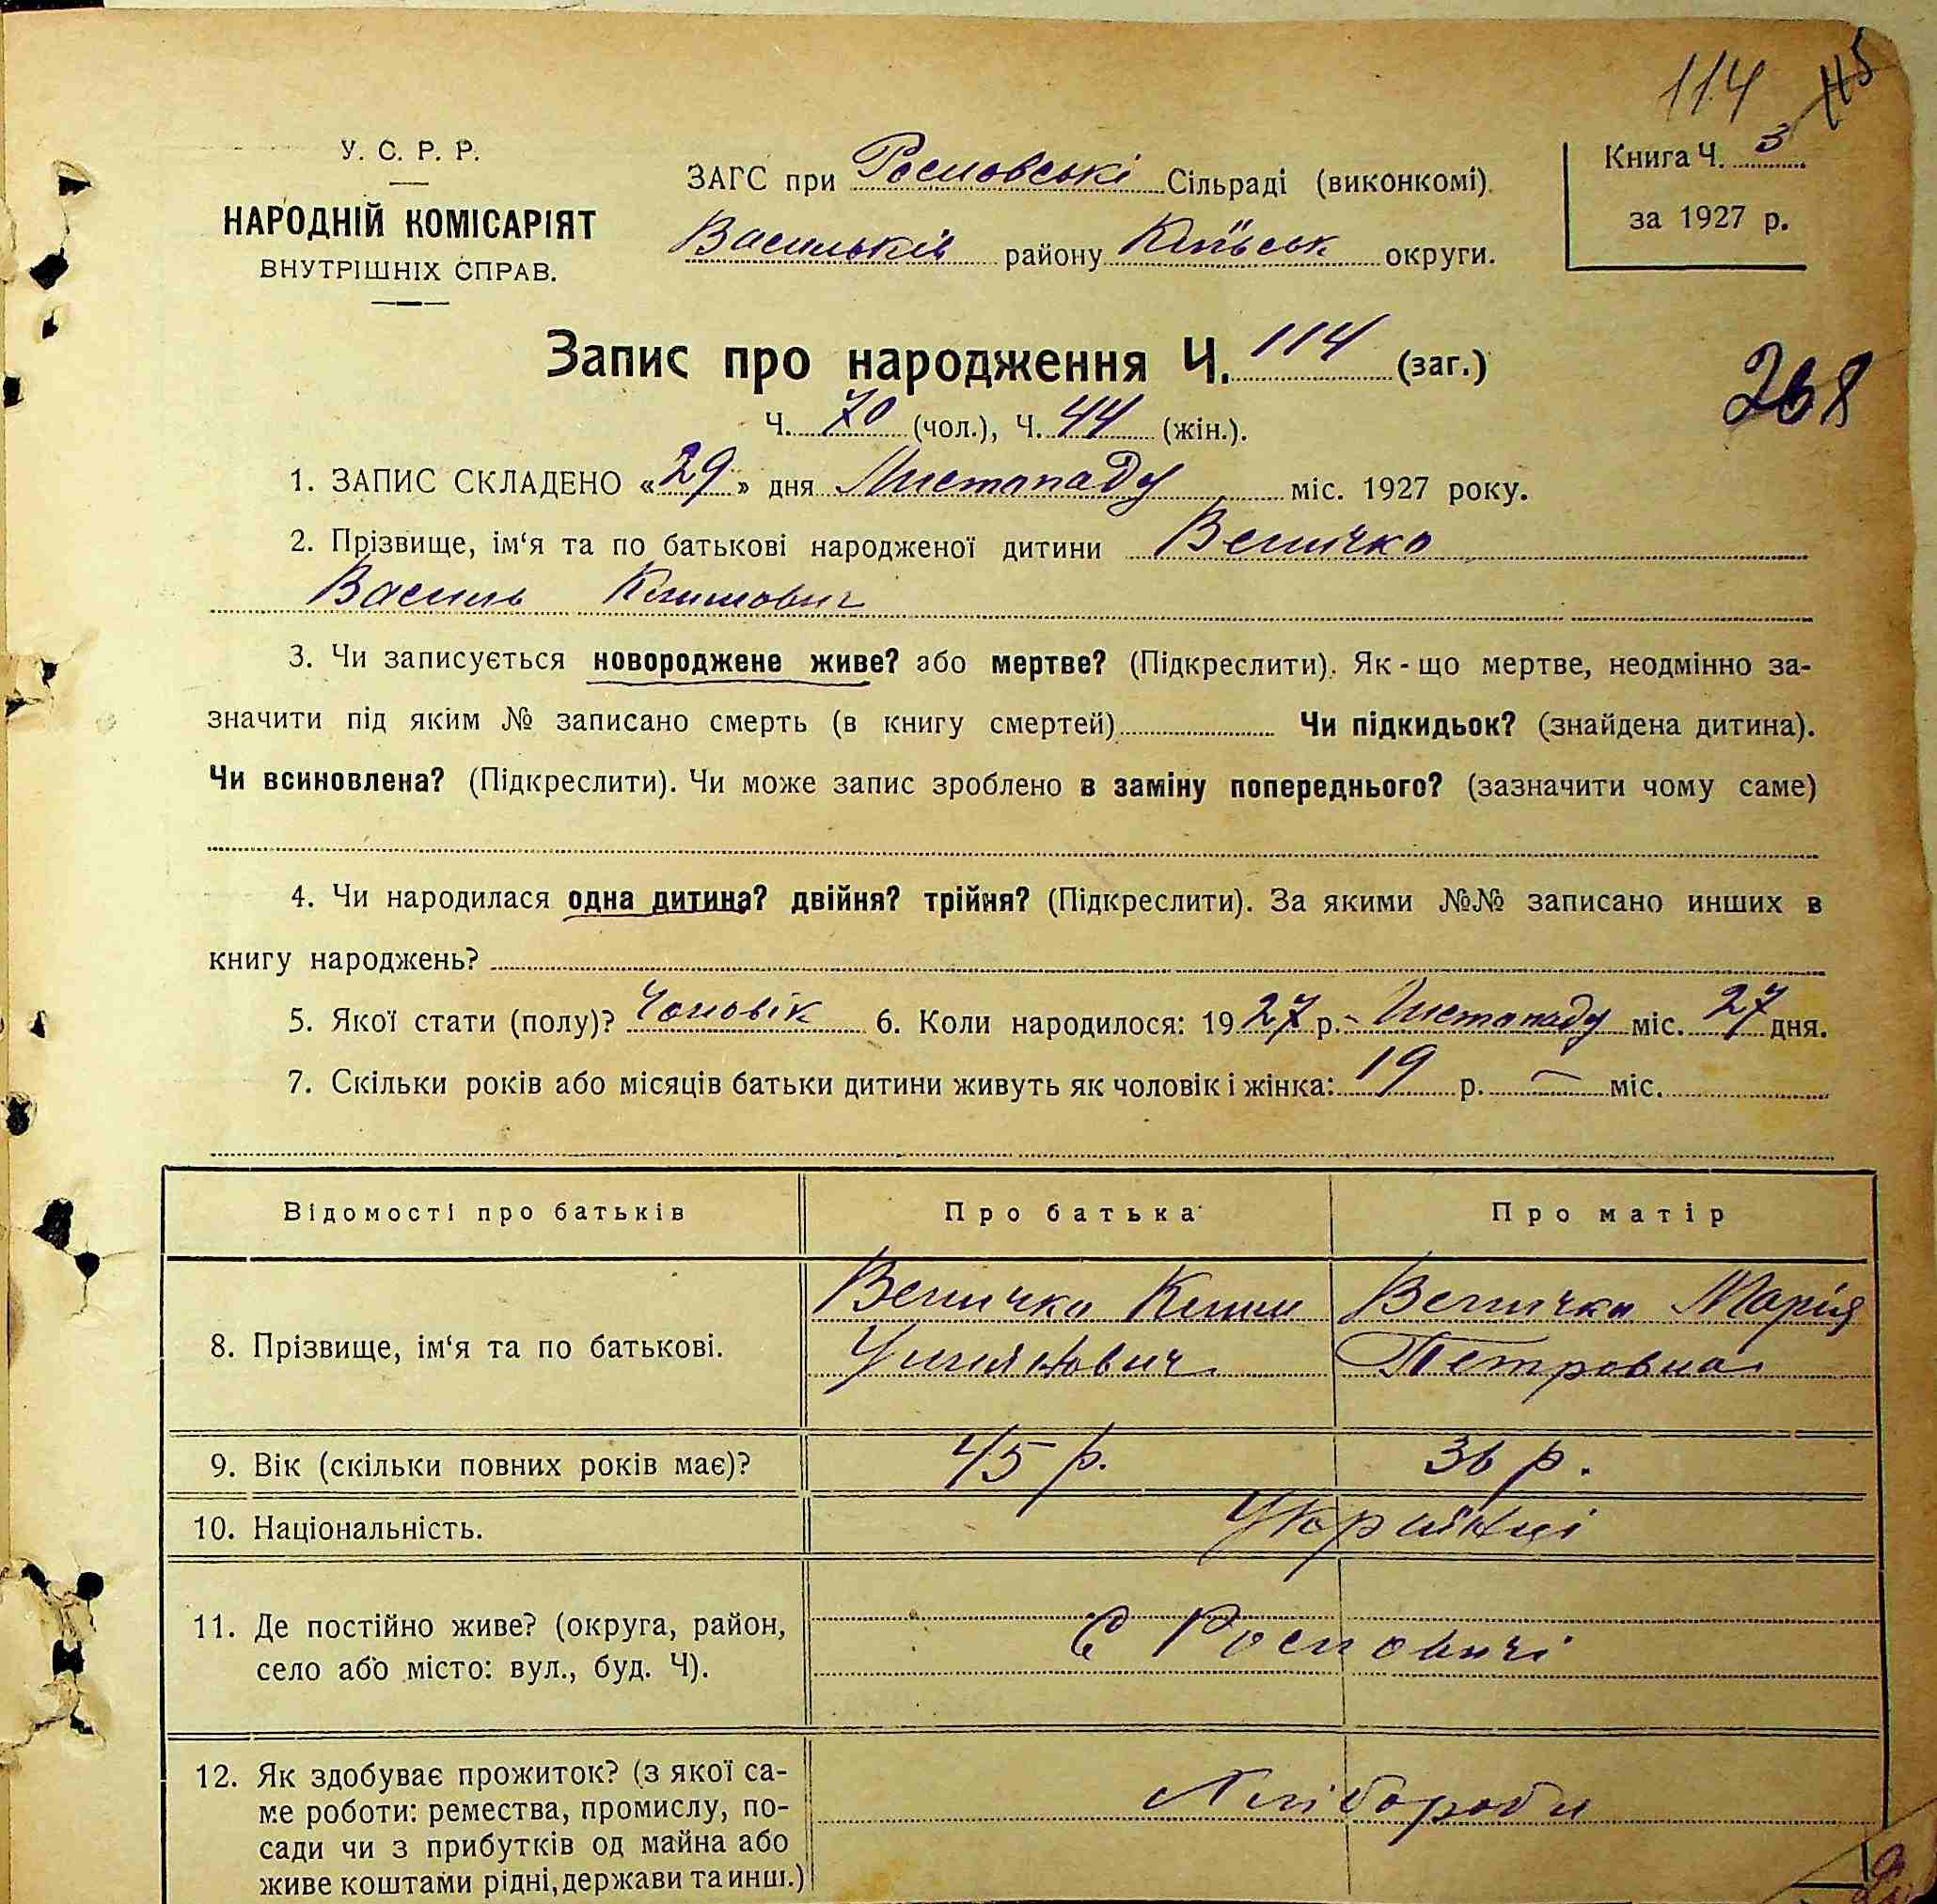 114 115
У. С. Р. Р.
НАРОДНІЙ КОМІСАРІЯТ
ВНУТРІШНІХ СПРАВ.
ЗАГС при Рославські Сільраді (виконкомі).
Васильків району Київськ округи.
Книга Ч. 3
за 1927 р.
Запис про народження Ч. 114 (заг.)
268
Ч. 70 (чол.), Ч. 44 (жін.).
1. ЗАПИС СКЛАДЕНО «29» дня Листопаду міс. 1927 року.
2. Прізвище, ім‘я та по батькові народженої дитини Величко
Василь Климович
3. Чи записується новороджене живе? або мертве? (Підкреслити). Як-що мертве, неодмінно за-
значити під яким № записано смерть (в книгу смертей) Чи підкидьок? (знайдена дитина).
Чи всиновлена? (Підкреслити). Чи може запис зроблено в заміну попереднього? (зазначити чому саме)
4. Чи народилася одна дитина? двійня? трійня? (Підкреслити). За якими №№ записано инших в
книгу народжень?
5. Якої стати (полу)? Чоловік 6. Коли народилося: 1927 р. Листопаду міс. 27 дня.
7. Скільки років або місяців батьки дитини живуть як чоловік і жінка: 19 р. — міс.
Відомості про батьків Про батька Про матір
8. Прізвище, ім‘я та по батькові.
Величко Клим
Улянович
Величко Марія
Петровна
9. Вік (скільки повних років має)? 45 р. 36 р.
10. Національність. Українці
11. Де постійно живе? (округа, район,
село або місто: вул., буд. Ч).
С
12. Як здобуває прожиток? (з якої са-
ме роботи: ремества, промислу, по-
сади чи з прибутків од майна або
живе коштами рідні, держави та инш.)
Хлібороби